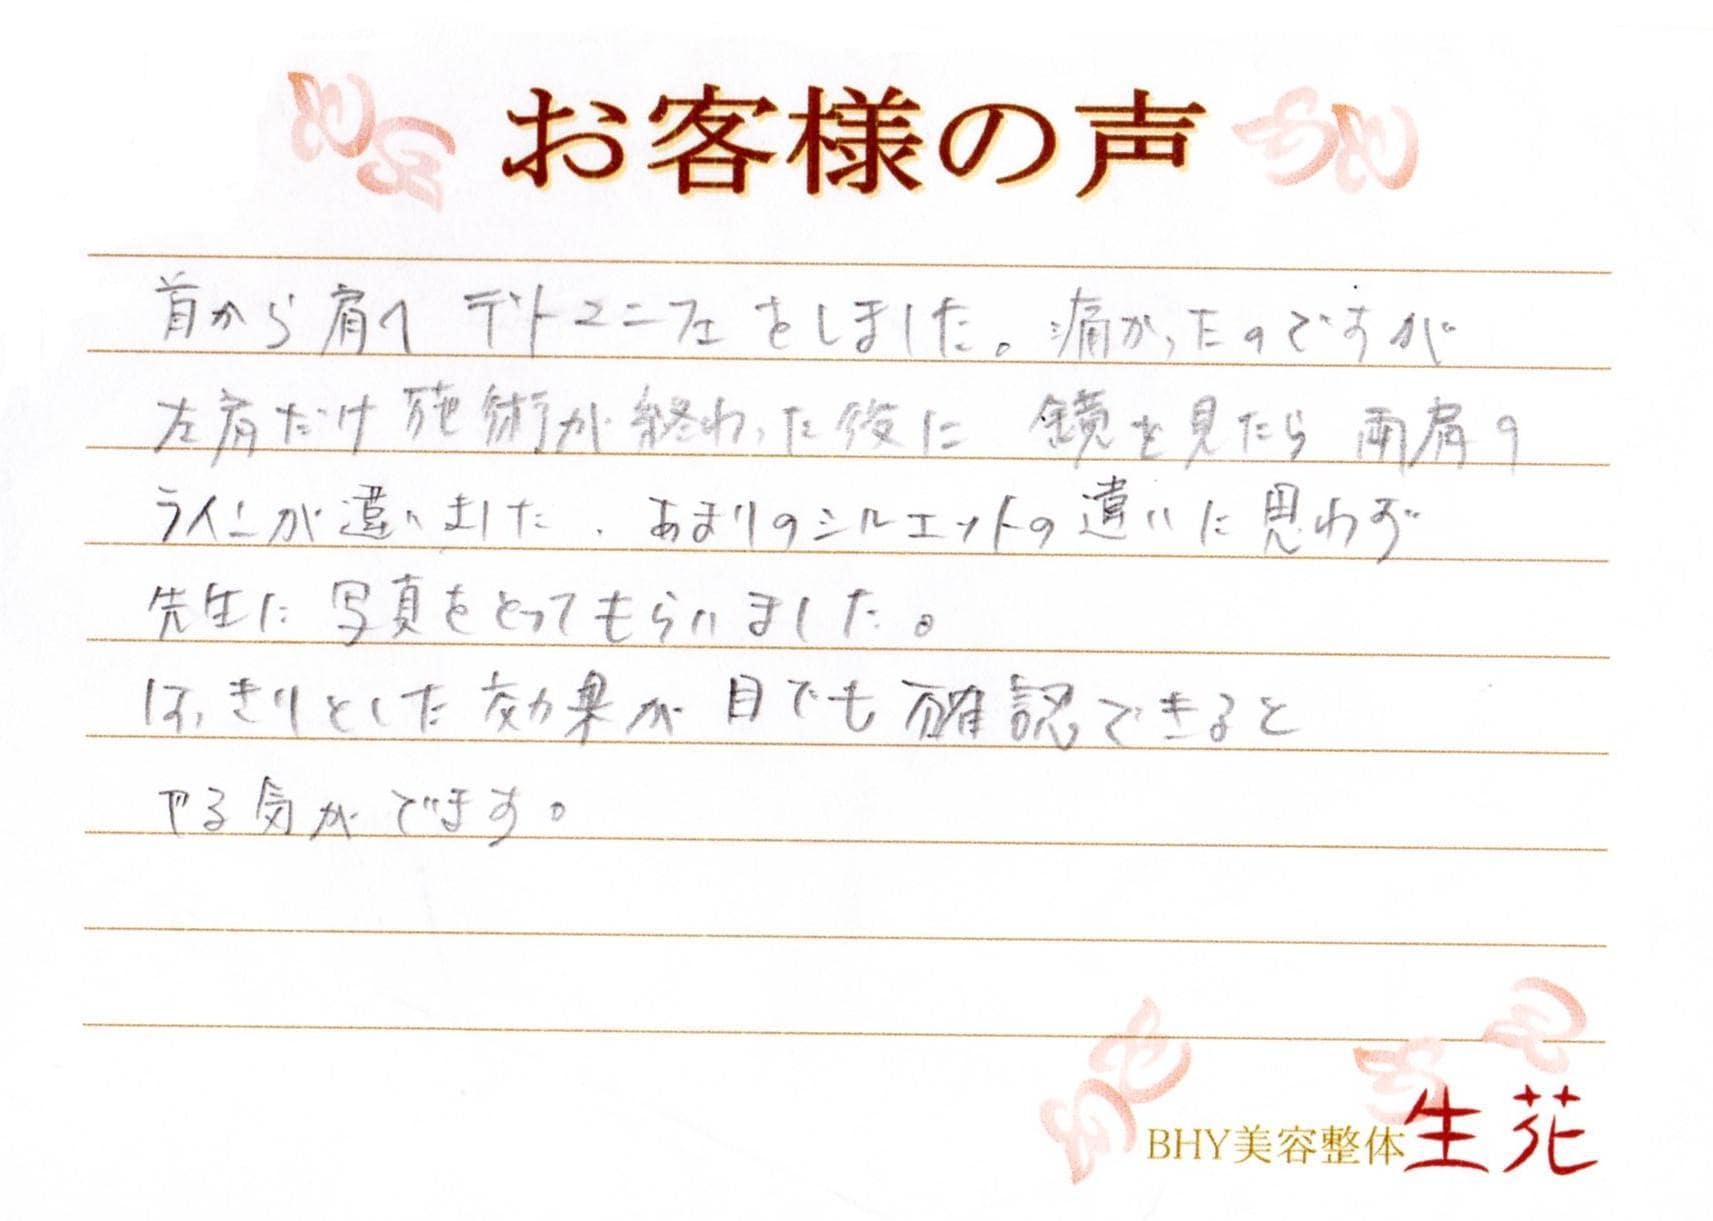 お客様の声
首から肩へ デトマニフェをしました。痛かったのですが
左肩だけ施術が終わった後に 鏡を見たら 両肩の
ラインが違いました. あまりのシルエットの違いに思わず
先生に 写真をとってもらいました。
はっきりとした効果が 目でも確認できると
やる気がでます。
BHY美容整体 生花